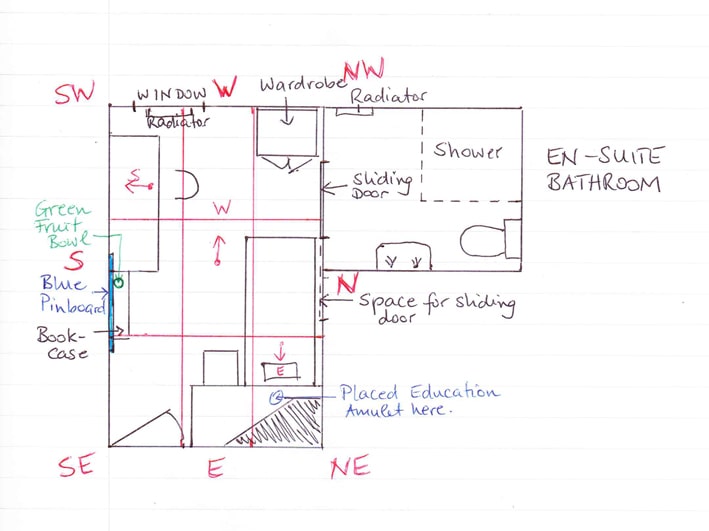 SW
WINDOW
W
Wardrobe
NW
Radiator
Radiator
Shower
EN-SUITE
BATHROOM
S
Sliding
Door
Green
Fruit
Bowl
W
S
Blue
Pinboard
N
Space for sliding
door
Book-
case
E
Placed Education
Amulet here.
SE
E
NE